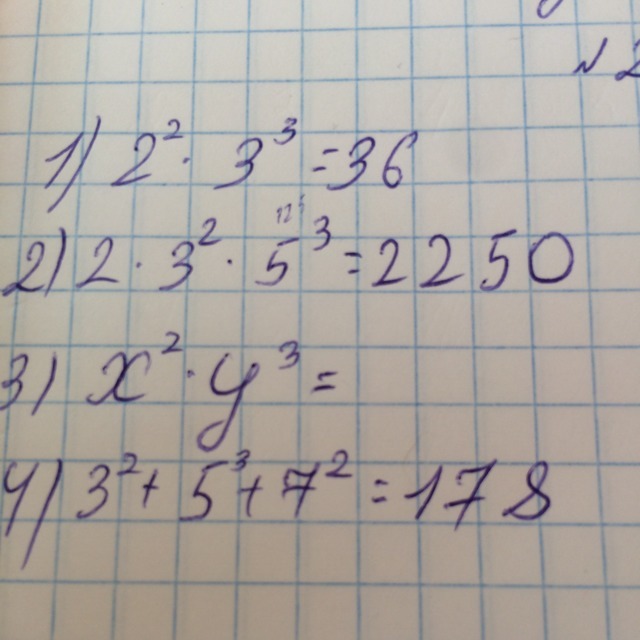 № 2
1) 2² · 3³ = 36
2) 2 · 3² · 5³ = 2250
3) x² · y³ =
4) 3² + 5³ + 7² = 178